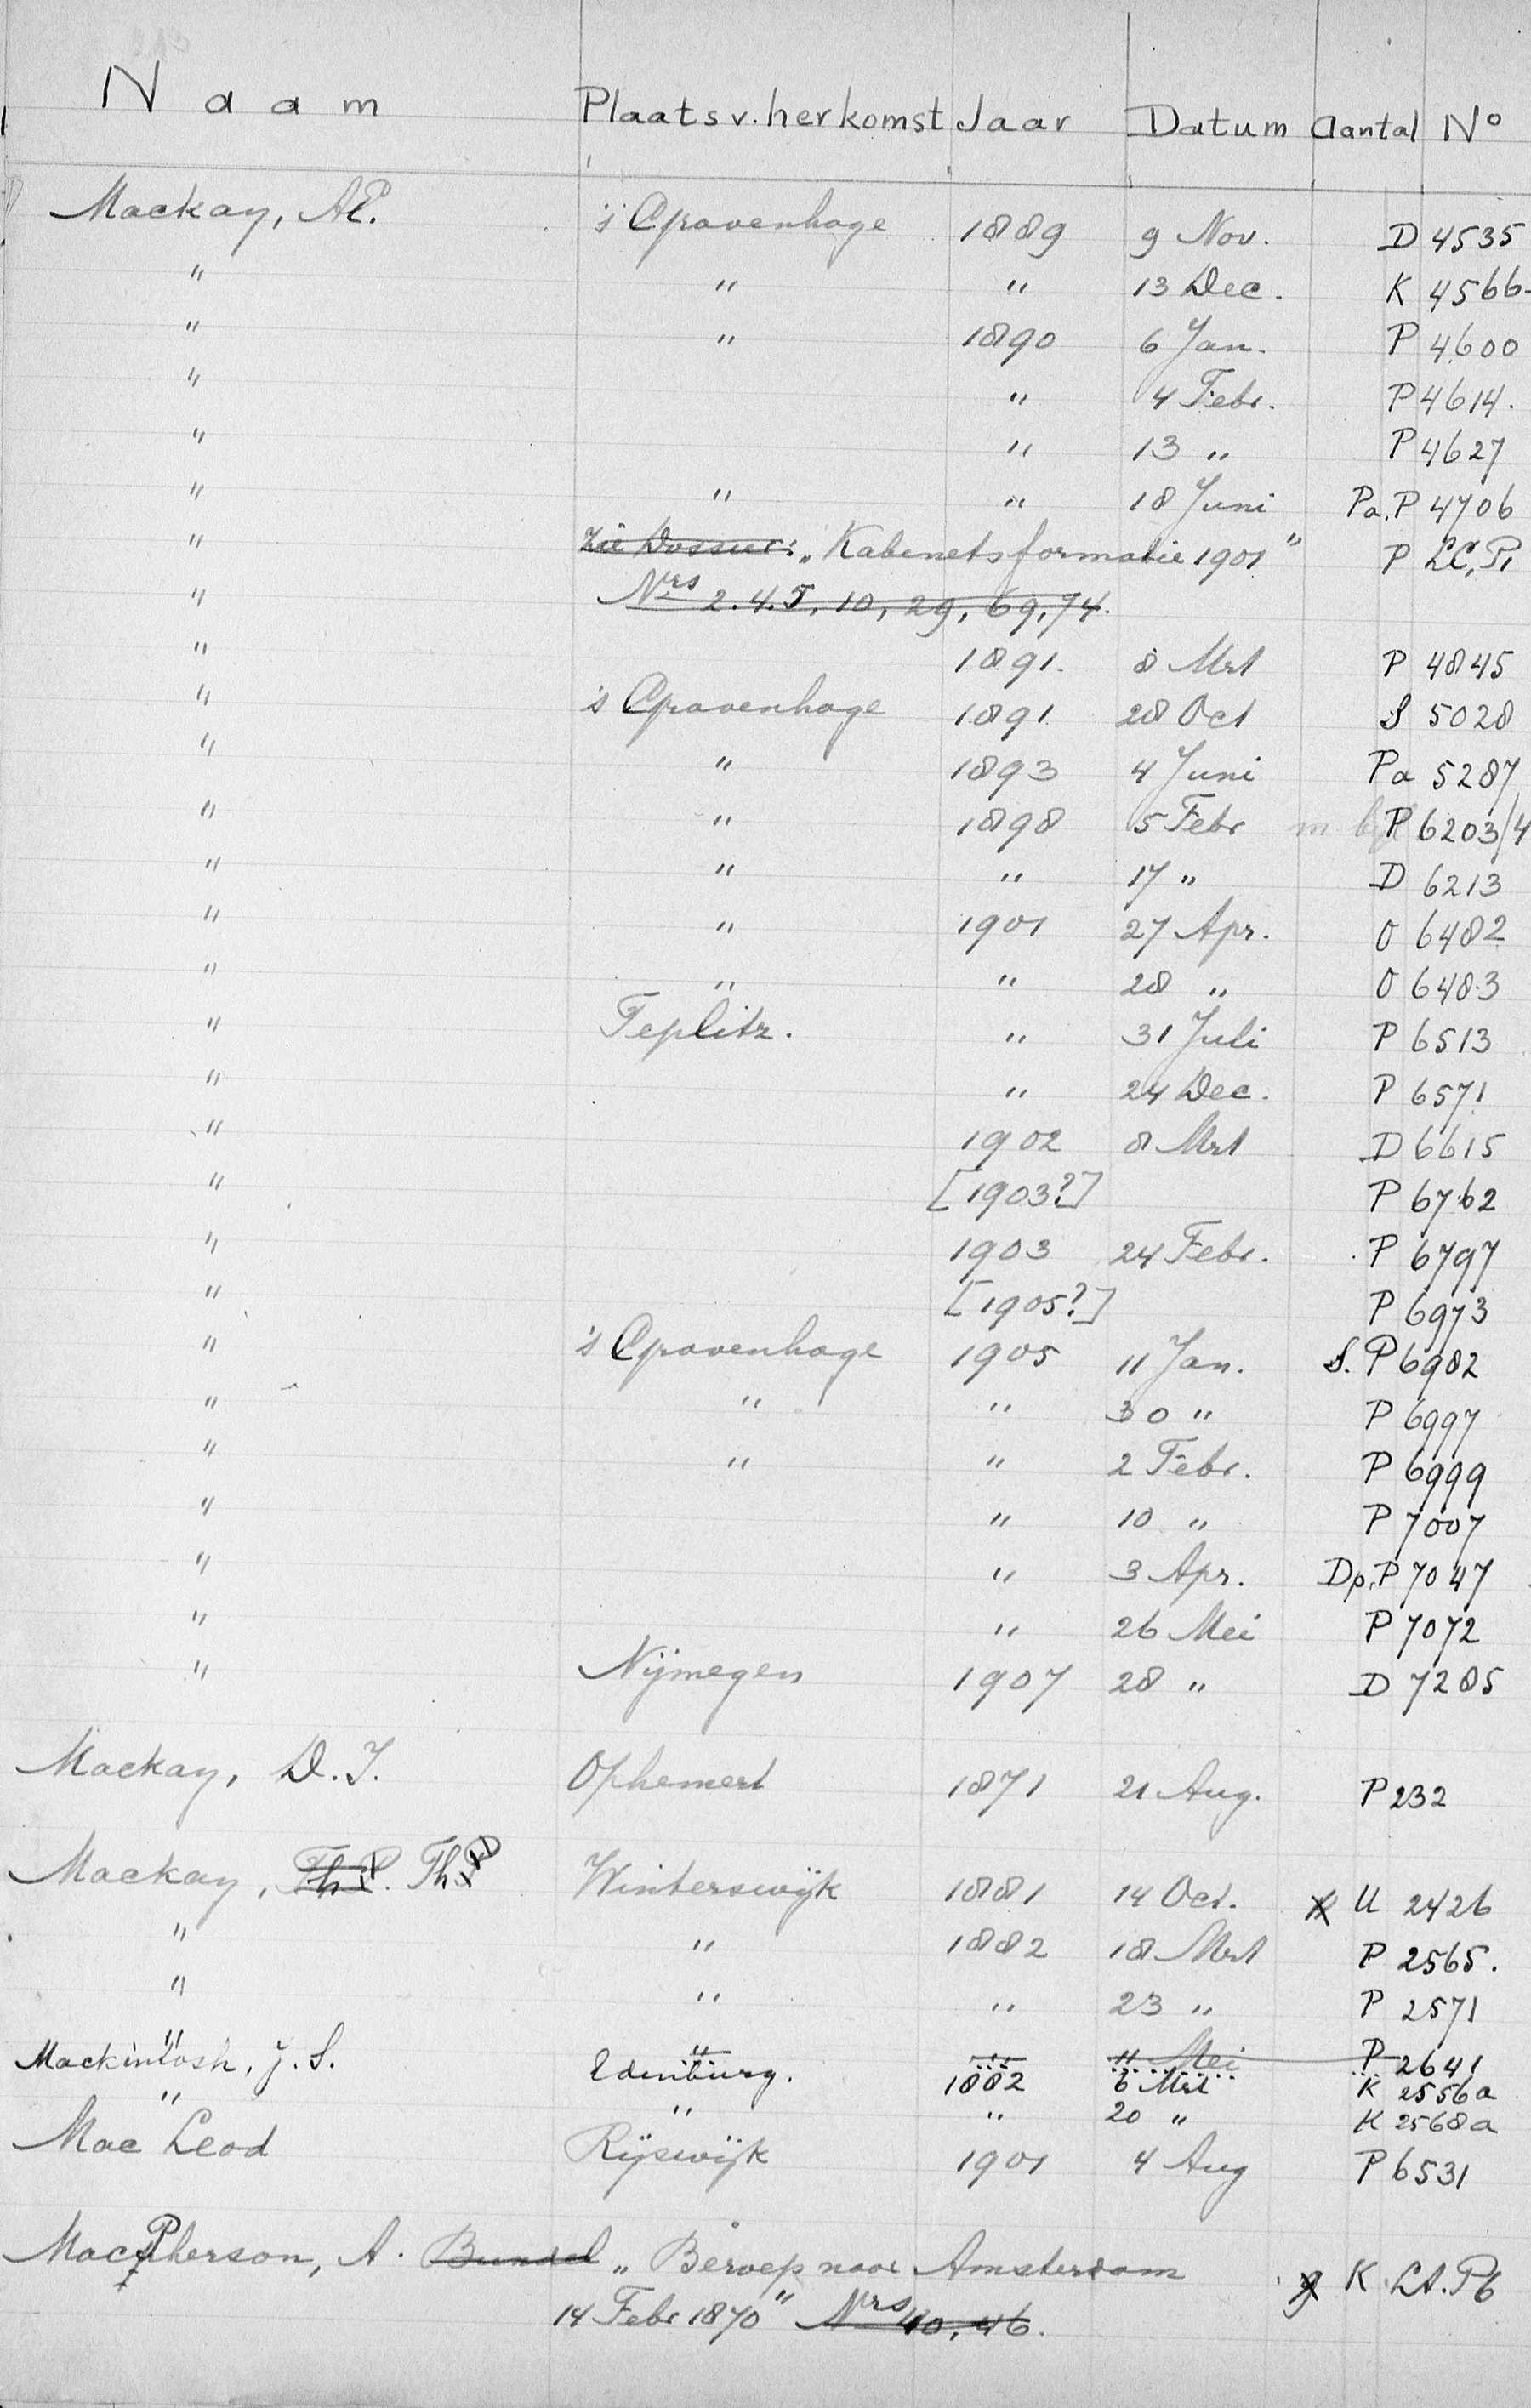 Naam Plaats v. herkomst Jaar Datum Aantal No
Mackay, Æ. 's Gravenhage 1889 9 Nov. D 4535
" " " 13 Dec. K 4566
" " 1890 6 Jan. P 4600
" " 4 Febr. P 4614.
" " 13 " P 4627
" " " 18 Juni Pa. P 4706
" Zie Dossier: „Kabinetsformatie 1901" P LC, P1
" Nrs 2.4.5, 10, 29, 69, 74.
" 1891. 8 Mrt P 4845
" 's Gravenhage 1891 28 Oct S 5028
" " 1893 4 Juni Pa 5287
" " 1898 5 Febr m P 6203/4
" " " 17 " D 6213
" " 1901 27 Apr. O 6482
" " " 28 " O 6483
" Teplitz. " 31 Juli P 6513
" " 24 Dec. P 6571
" 1902 8 Mrt D 6615
" [1903?] P 6762
" 1903 24 Febr. P 6797
" [1905?] P 6973
" 's Gravenhage 1905 11 Jan. S. P 6982
" " " 30 " P 6997
" " " 2 Febr. P 6999
" " 10 " P 7007
" " 3 Apr. Dp. P 7047
" " 26 Mei P 7072
" Nijmegen 1907 28 " D 7285
Mackay, D.J. Ophemert 1871 21 Aug. P 232
Mackay, Th.P. Th.P Winterswijk 1881 14 Oct. U 2426
" " 1882 18 Mrt P 2565.
" " " 23 " P 2571
" " " 11 Mei P 2641
Mackintosh, J.S. Edinburg. 1882 6 Mrt K 2556a
" " " 20 " K 2568a
Mac Leod Rijswijk 1901 4 Aug P 6531
MacPherson, A. Bundel „Beroep naar Amsterdam K LA. P6
14 Febr 1870" Nrs 40, 46.